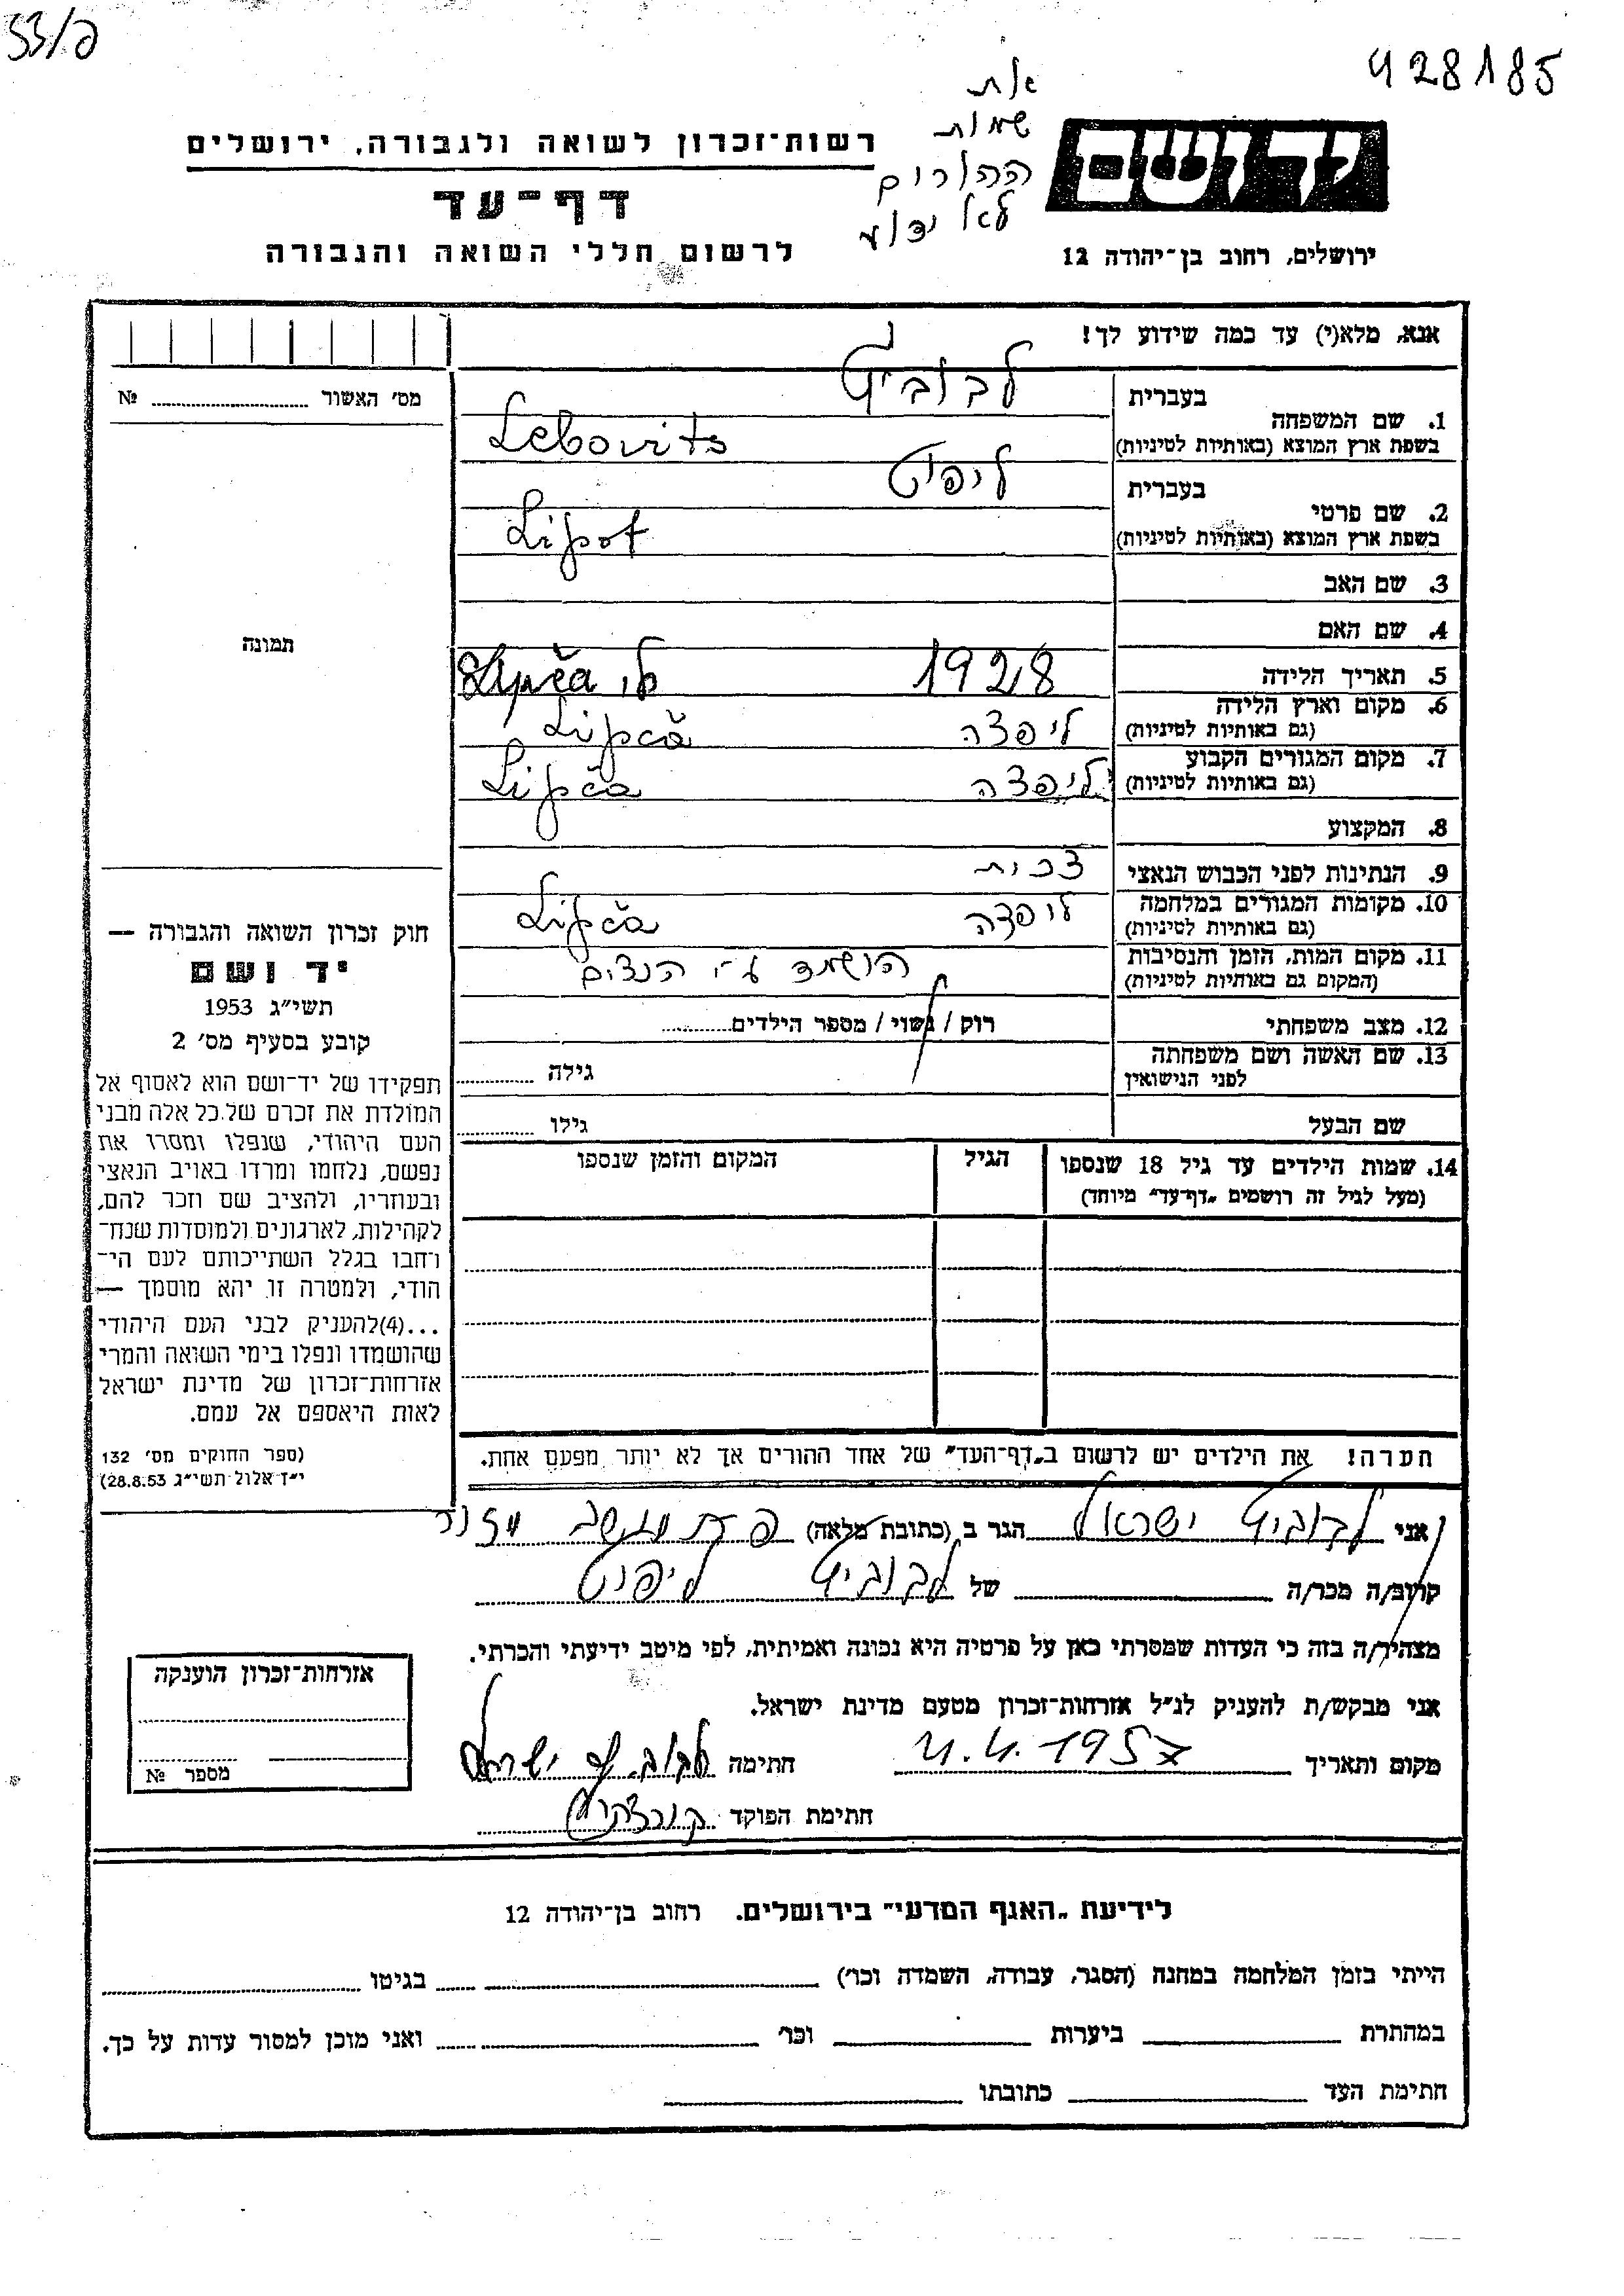 33/פ
428185
את
שמות
ההורים
לא ידוע
יד ושם
ירושלים, רחוב בן־יהודה 12
רשות־זכרון לשואה ולגבורה, ירושלים
דף־עד
לרשום חללי השואה והגבורה
אנא, מלא(י) עד כמה שידוע לך!
מס' האשור № 
תמונה
1. שם המשפחה
בעברית לבוביץ
בשפת ארץ המוצא (באותיות לטיניות) Lebovits
2. שם פרטי
בעברית ליפוט
בשפת ארץ המוצא (באותיות לטיניות) Lipot
3. שם האב
4. שם האם
5. תאריך הלידה 1928
6. מקום וארץ הלידה
(גם באותיות לטיניות) ליפצה Lipča
7. מקום המגורים הקבוע
(גם באותיות לטיניות) ליפצה Lipča
8. המקצוע
9. הנתינות לפני הכבוש הנאצי צכית
10. מקומות המגורים במלחמה
(גם באותיות לטיניות) ליפצה Lipča
11. מקום המות, הזמן והנסיבות
(המקום גם באותיות לטיניות) הושמד ע"י הנצים
12. מצב משפחתי רוק / נשוי / מספר הילדים
13. שם האשה ושם משפחתה
לפני הנישואין גילה
שם הבעל גילו
14. שמות הילדים עד גיל 18 שנספו הגיל המקום והזמן שנספו
(מעל לגיל זה רושמים „דף־עד" מיוחד)
חוק זכרון השואה והגבורה —
יד ושם
תשי"ג 1953
קובע בסעיף מס' 2
תפקידו של יד־ושם הוא לאסוף אל
המולדת את זכרם של כל אלה מבני
העם היהודי, שנפלו ומסרו את
נפשם, נלחמו ומרדו באויב הנאצי
ובעוזריו, ולהציב שם וזכר להם,
לקהילות, לארגונים ולמוסדות שנח־
רבו בגלל השתייכותם לעם הי־
הודי, ולמטרה זו יהא מוסמך —
...(4)להעניק לבני העם היהודי
שהושמדו ונפלו בימי השואה והמרי
אזרחות־זכרון של מדינת ישראל
לאות היאספם אל עמם.
(ספר החוקים מס' 132
י"ז אלול תשי"ג 28.8.53)
הערה! את הילדים יש לרשום ב„דף־העד" של אחד ההורים אך לא יותר מפעם אחת.
אני לבוביץ ישראל הגר ב (כתובת מלאה) פ"ת מושב מזור
קרוב/ה מכר/ה של לבוביץ ליפוט
מצהיר/ה בזה כי העדות שמסרתי כאן על פרטיה היא נכונה ואמיתית, לפי מיטב ידיעתי והכרתי.
אני מבקש/ת להעניק לנ"ל אזרחות־זכרון מטעם מדינת ישראל.
מקום ותאריך 4.4.1957 חתימה לבוביץ ישראל
חתימת הפוקד
אזרחות־זכרון הוענקה
מספר №
לידיעת „האגף המדעי" בירושלים. רחוב בן־יהודה 12
הייתי בזמן המלחמה במחנה (הסגר, עבודה, השמדה וכו') בגיטו
במחתרת ביערות וכו' ואני מוכן למסור עדות על כך.
חתימת העד כתובתו